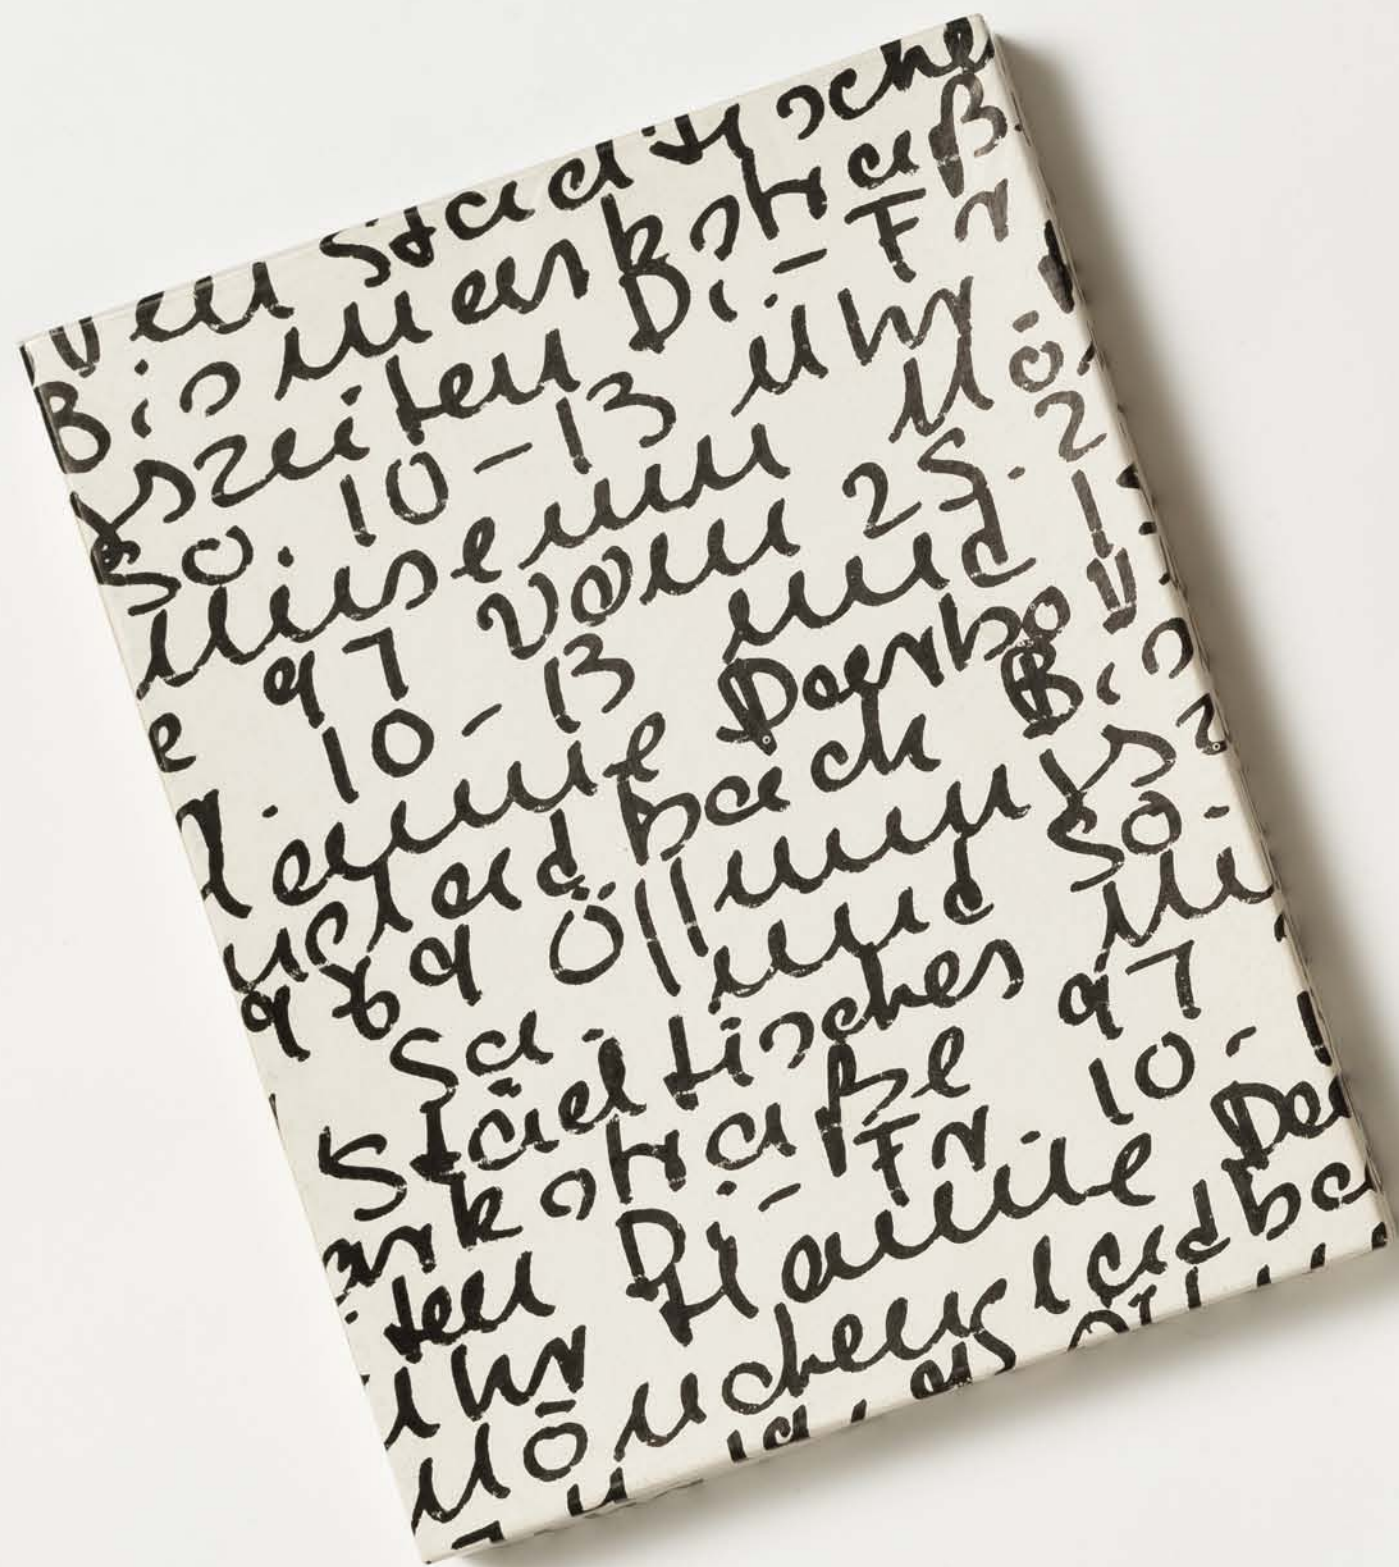 Städtische
Bismarkstraß
gszeiten Di.-Fr
So. 10-13 Uhr
museum Mö
e 97 vom 25. 2
10-13 und 1
Hanne Darbov
ngladbach Bis
969 Öffnungsz
Sa. und So.
Städtisches Mu
arkstraße 97
iten Di.-Fr. 10-1
Uhr Hanne Da
Mönchengladba